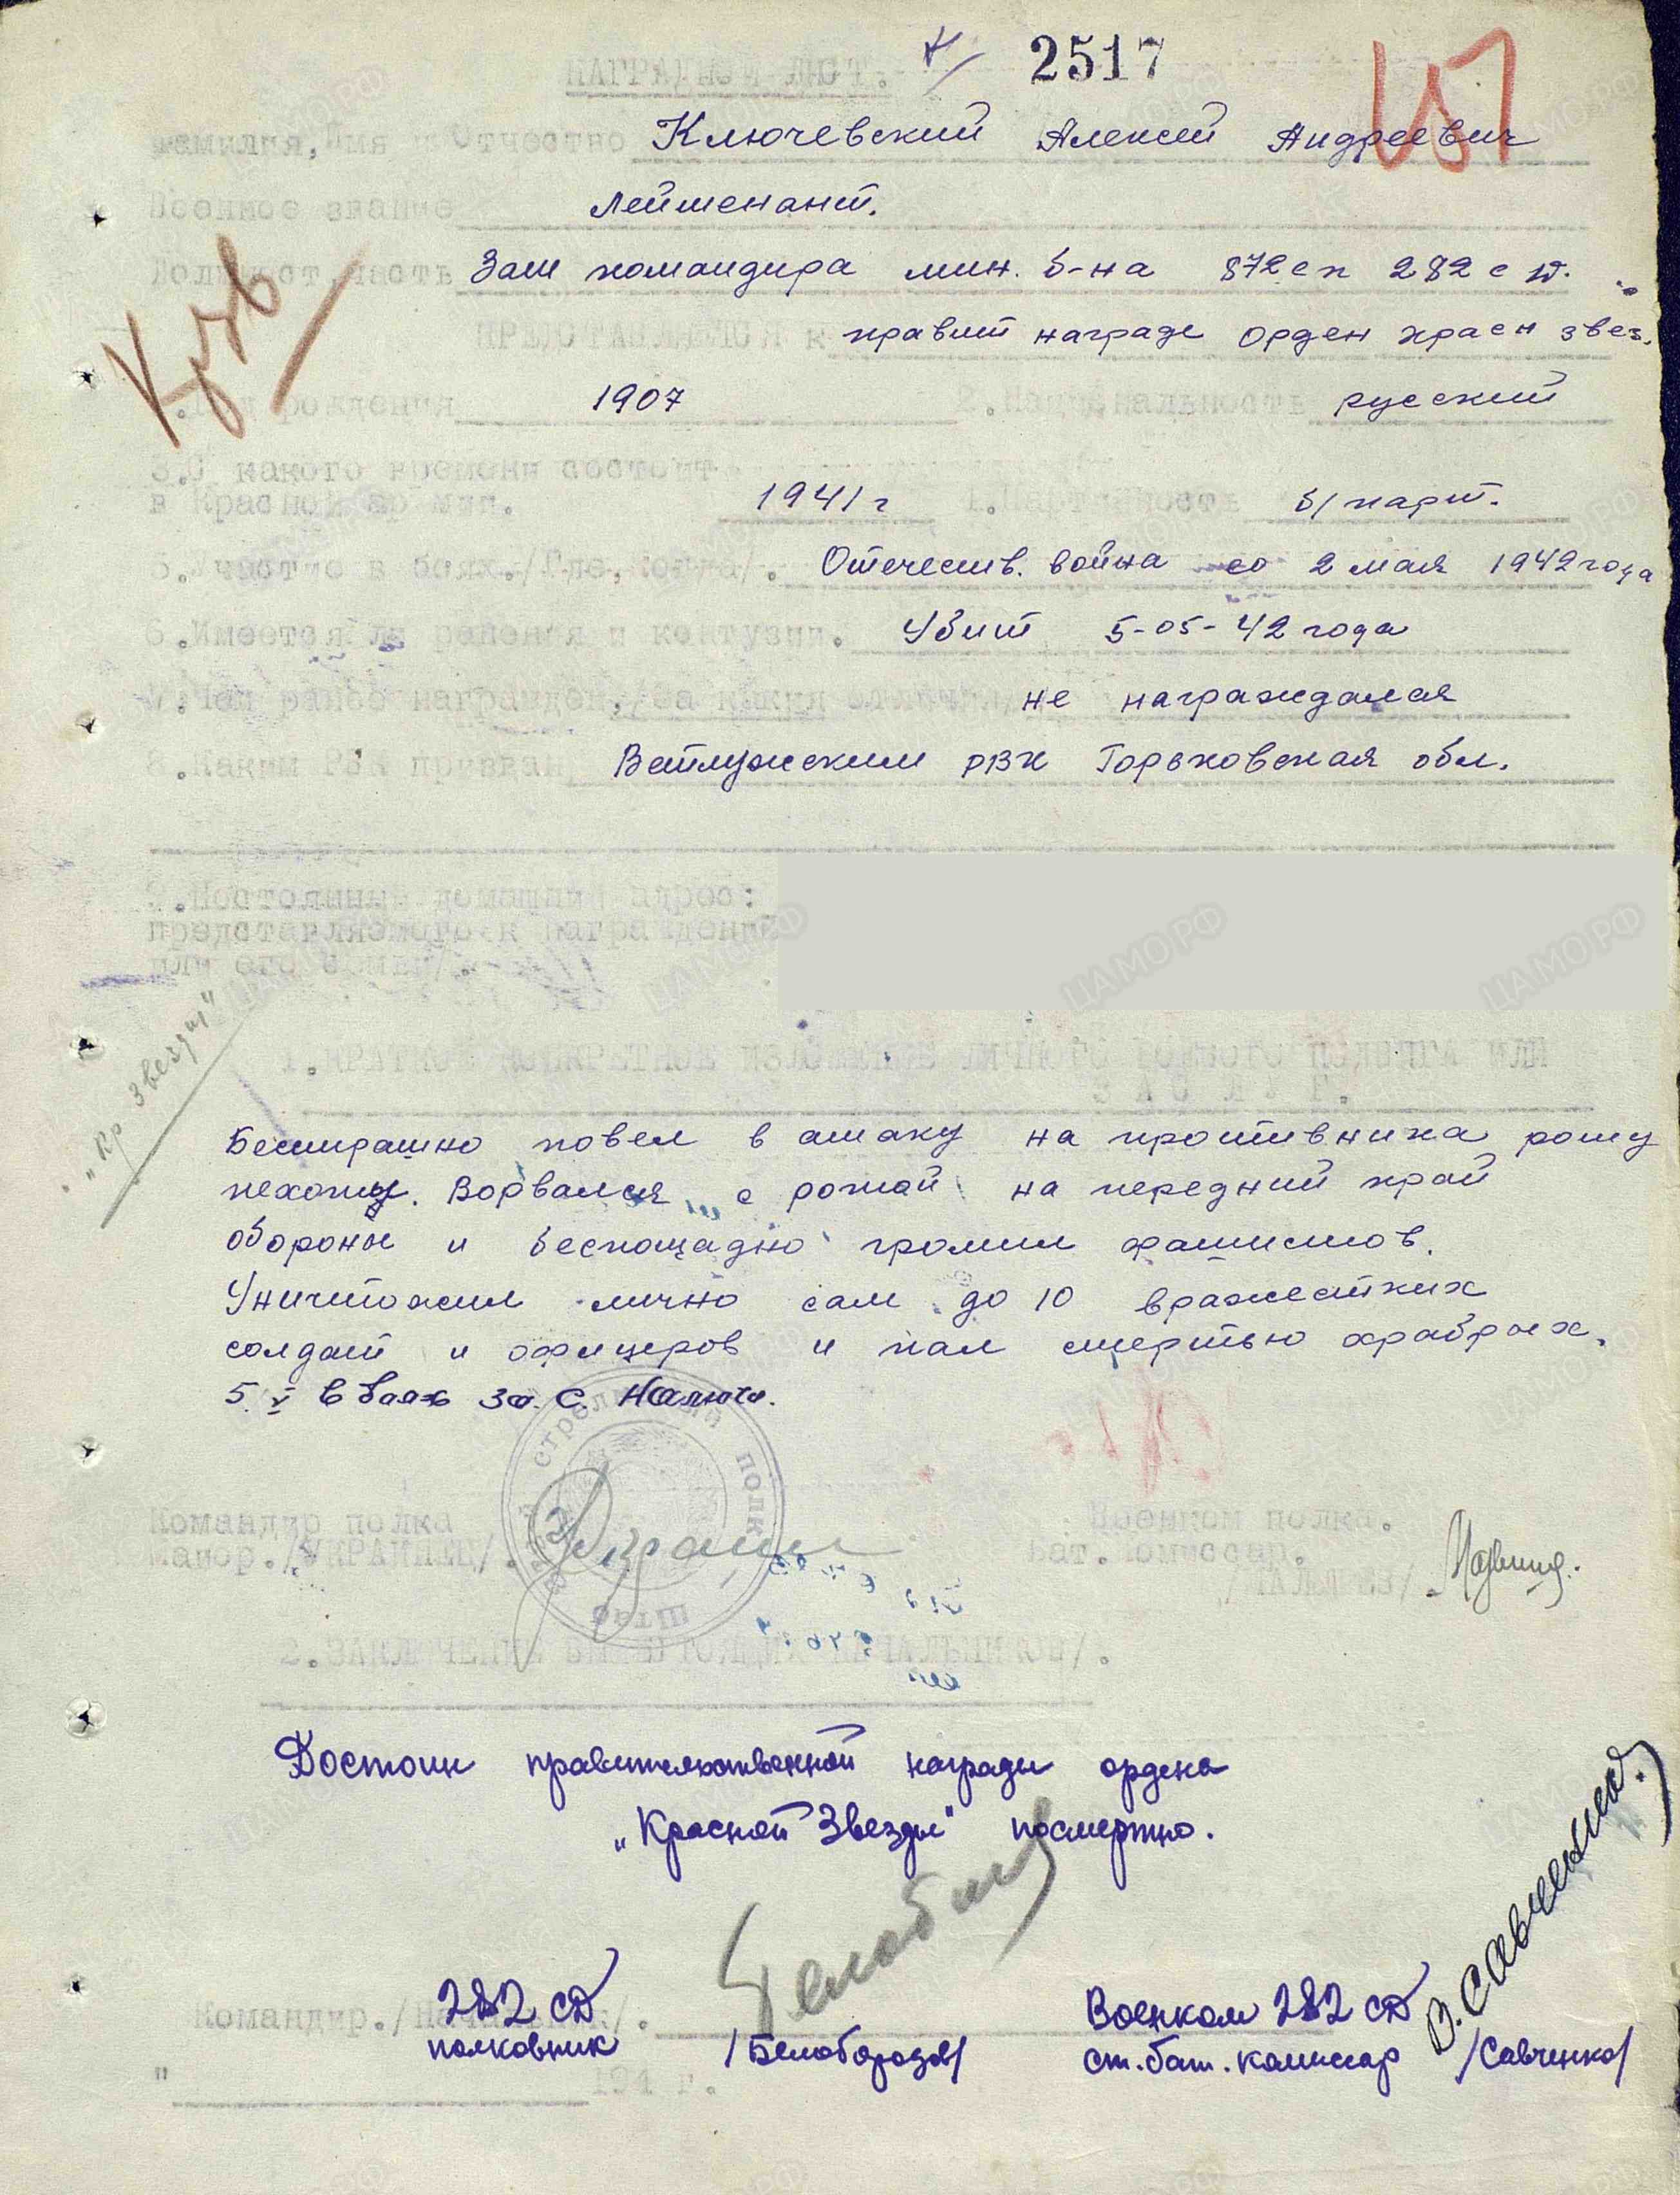 2517
НАГРАДНОЙ ЛИСТ.
Фамилия, Имя Отчество Ключевский Алексей Андреевич
Военное звание лейтенант.
Должност, часть Зам командира мин. б-на 872 сп 282 с д.
ПРЕДСТАВЛЯЕТСЯ к правит награде орден красн звез.
1.Год рождения 1907 2.Национальность русский
3.С какого времени состоит
в Красной армии. 1941 г 4.Партийность б/парт.
5.Участие в боях./Где, когда/. Отечеств. война со 2 мая 1942 года
6.Имеется ли ранения и контузии. Убит 5-05-42 года
7.Чем ранее награжден,/за какия отличия/ не награждался
8.Каким РВК призван Ветлужским РВК Горьковская обл.
9.Постоянный домашний адрес:
представляемого к награждению
или его семьи/.
"Кр Звезды"
1.КРАТКОЕ КОНКРЕТНОЕ ИЗЛОЖЕНИЕ ЛИЧНОГО БОЕВОГО ПОДВИГА ИЛИ
ЗАСЛУГ.
Бесстрашно повел в атаку на противника роту
пехоты. Ворвался с ротой на передний край
обороны и беспощадно громил фашистов.
Уничтожил лично сам до 10 вражеских
солдат и офицеров и пал смертью храбрых.
5.V в боях за с. Налючи.
Командир полка Военком полка.
Майор./УКРАИНЕЦ/. Бат. Комиссар.
стрелковый полк
Штаб
2.ЗАКЛЮЧЕНИЕ ВЫШЕСТОЯЩИХ НАЧАЛЬНИКОВ/.
Достоин правительственной награды ордена
„Красной Звезды" посмертно.
282 СД Военком 282 СД
Командир./Начальник/.
полковник /Белобородов/ ст. бат. комиссар /Савченко/
В. Савченко
" 194 г.